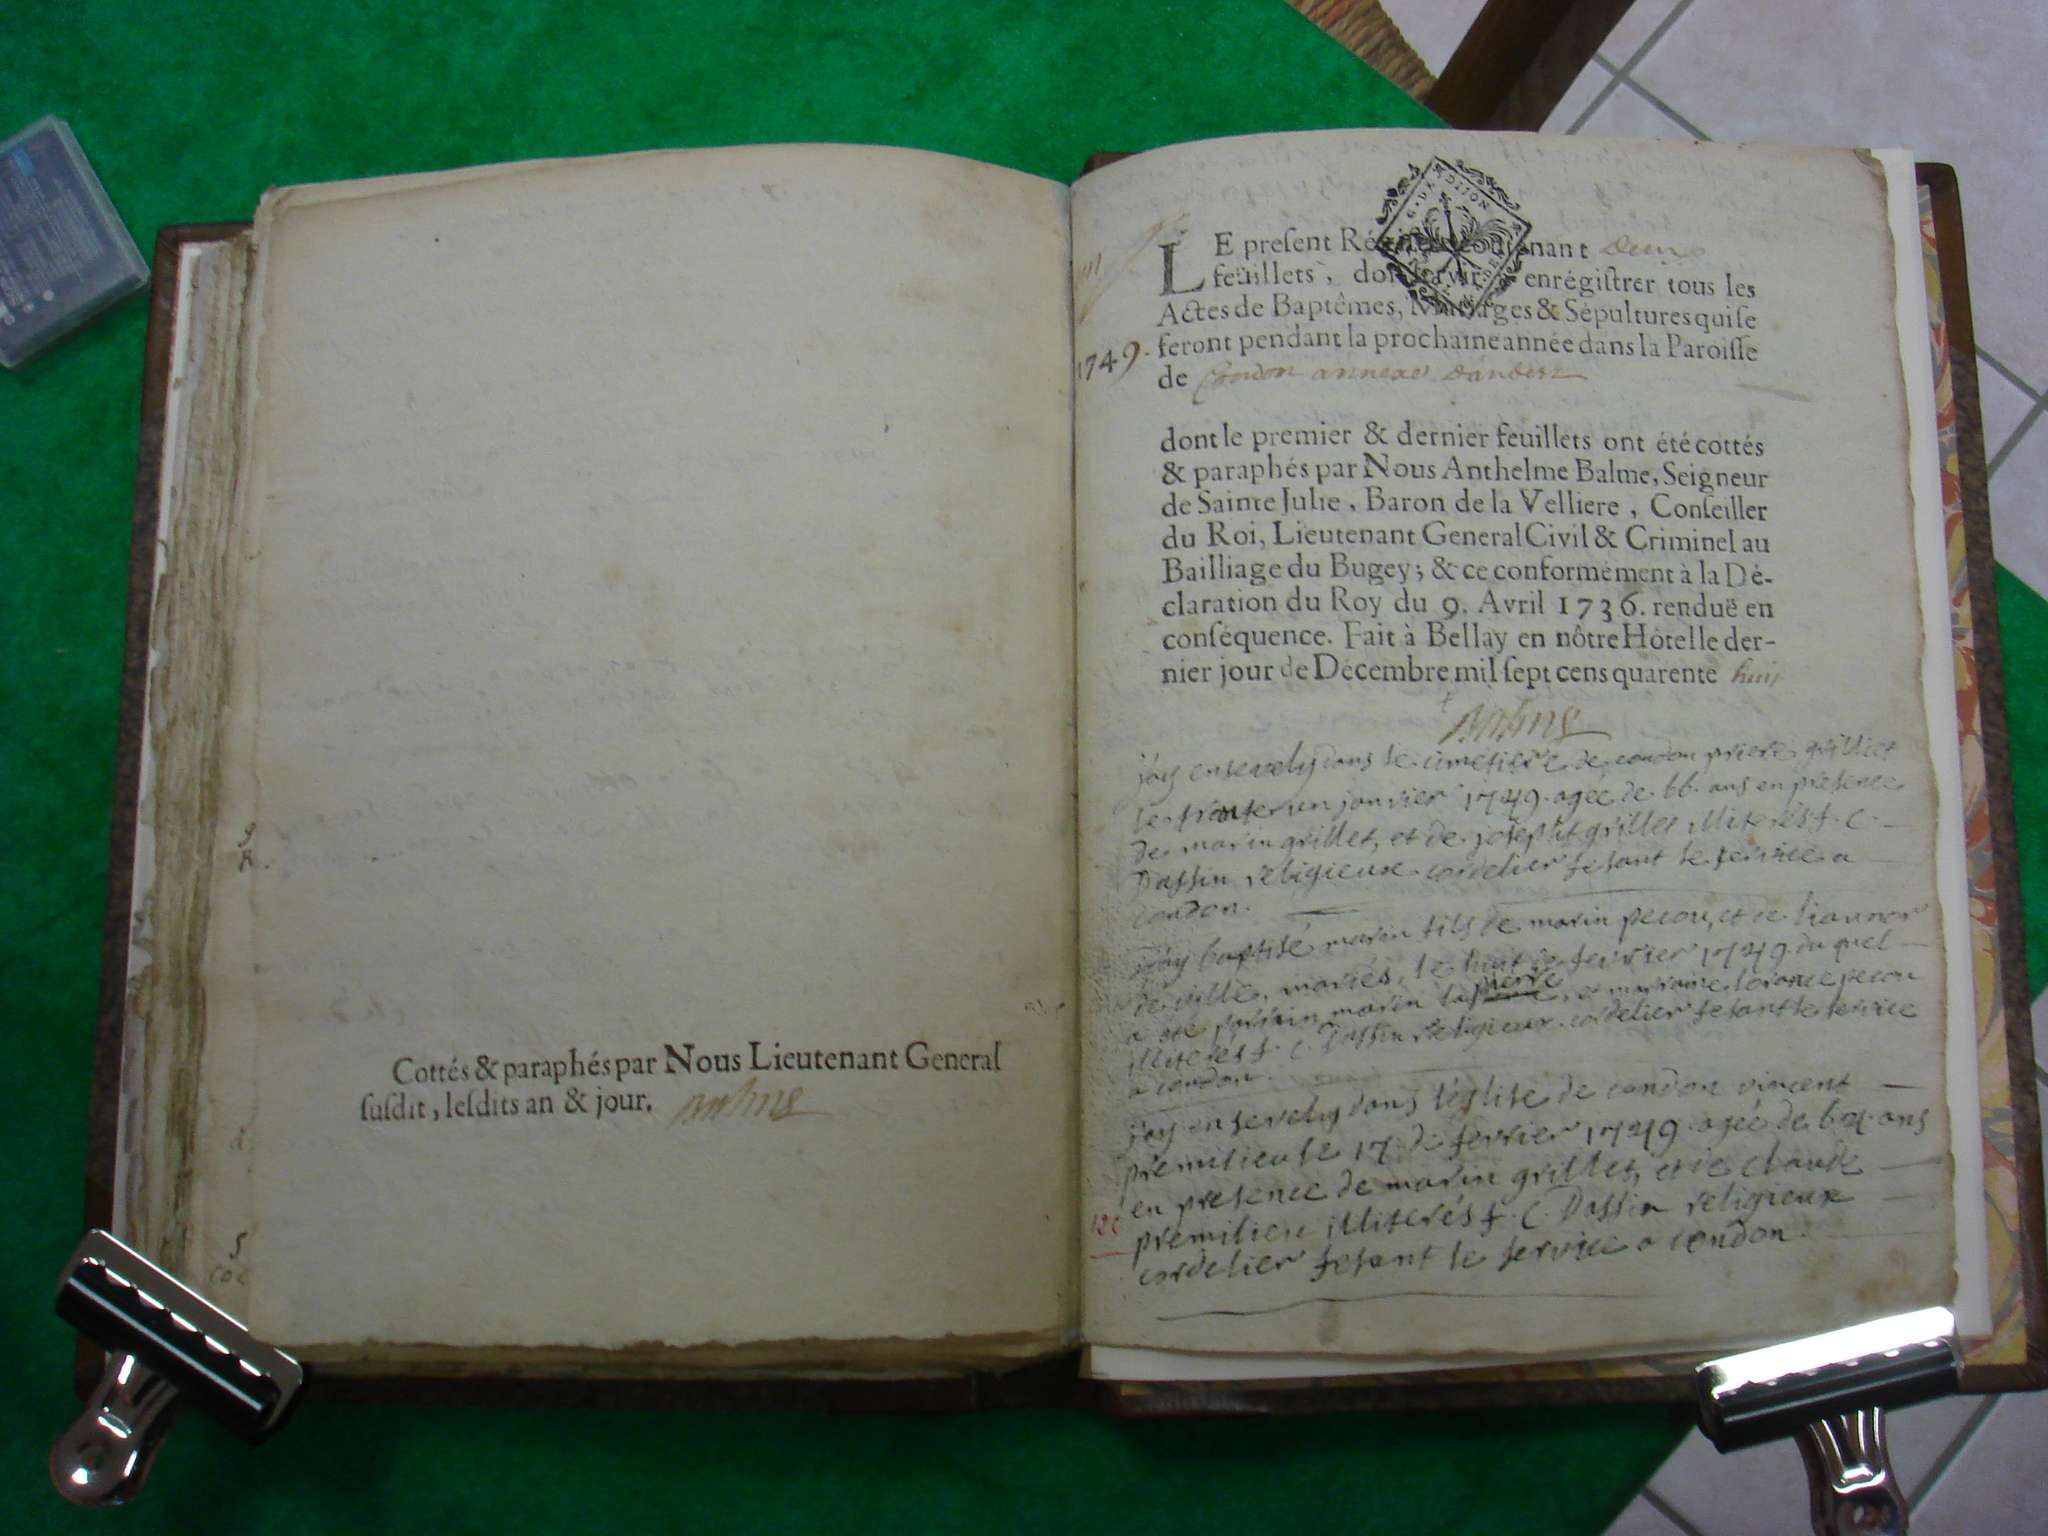 Cottés & paraphés par Nous Lieutenant General
susdit, lesdits an & jour.
LE present Régistre contenant deux
feüillets, doit servir à enrégistrer tous les
Actes de Baptêmes, Mariages & Sépultures qui se
1749. feront pendant la prochaine année dans la Paroisse
de Condon annexe d'andert
dont le premier & dernier feuillets ont été cottés
& paraphés par Nous Anthelme Balme, Seigneur
de Sainte Julie, Baron de la Velliere, Conseiller
du Roi, Lieutenant General Civil & Criminel au
Bailliage du Bugey; & ce conformément à la Dé-
claration du Roy du 9. Avril 1736. renduë en
conséquence. Fait à Bellay en nôtre Hôtel le der-
nier jour de Décembre mil sept cens quarente huit
j'ay ensevely dans le cimetiere de condon grilliet
le trente un janvier 1749. agée de 66. ans en presence
de marin grillet, et de joseph grillet illiterés f. C.
Dassin religieux cordelier fesant le service a
condon.
j'ay baptisé marin fils de marin pecou, et de
de ville, mariés, le huit de fevrier 1749. du quel
a été parrain marin lapierre, et marraine pecou
illiterés f. C. Dassin religieux cordelier fesant le service
a condon.
j'ay ensevely dans l'église de condon vincent
premilieu le 17 de fevrier 1749 agée de 64. ans
en presence de marin grillet, et de claude
premilieu illiterés f. C. Dassin religieux
cordelier fesant le service a condon.